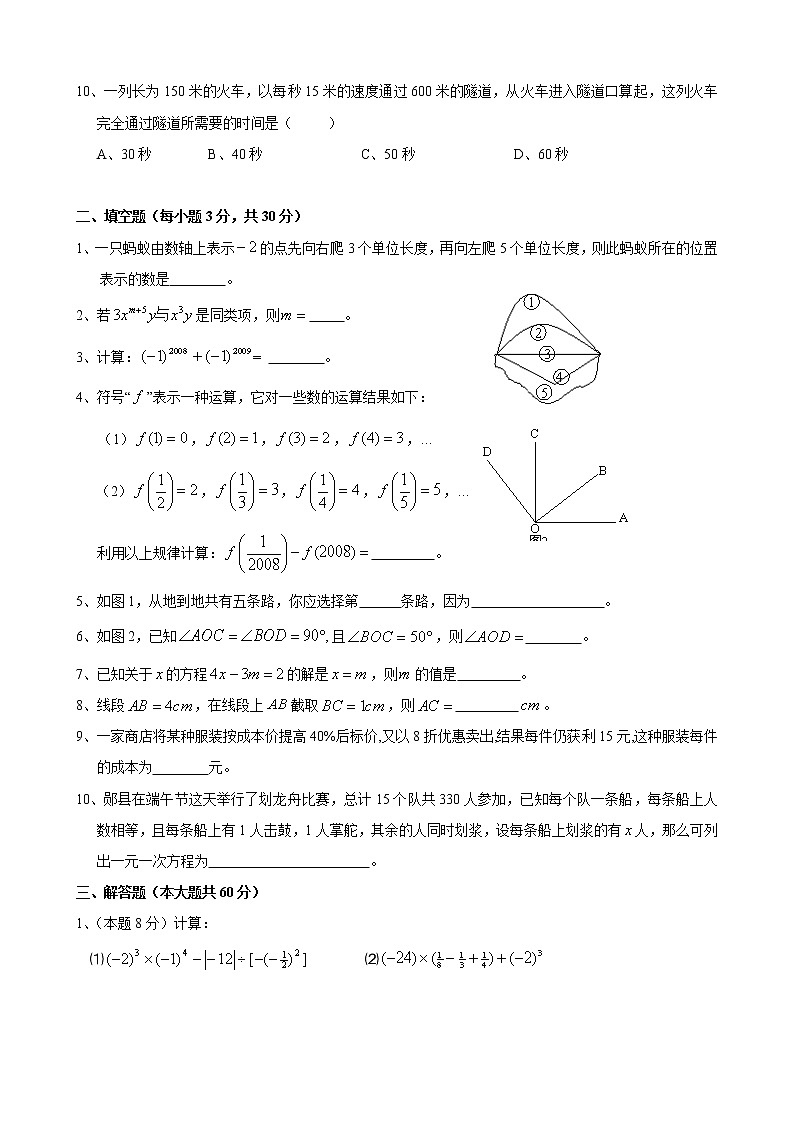 10、一列长为 150 米的火车，以每秒 15 米的速度通过 600 米的隧道，从火车进入隧道口算起，这列火车
完全通过隧道所需要的时间是（　　）
A、30 秒　B、40 秒　C、50 秒　D、60 秒
二、填空题（每小题 3 分，共 30 分）
1、一只蚂蚁由数轴上表示－2 的点先向右爬 3 个单位长度，再向左爬 5 个单位长度，则此蚂蚁所在的位置
表示的数是________。
2、若 3x^{m+5}y与x^3y 是同类项，则m = _____。
3、计算：(−1)^{2008} + (−1)^{2009} = ________。
4、符号“f”表示一种运算，它对一些数的运算结果如下：
（1）f(1) = 0，f(2) = 1，f(3) = 2，f(4) = 3，…
（2）f(1/2) = 2，f(1/3) = 3，f(1/4) = 4，f(1/5) = 5，…
利用以上规律计算：f(1/2008) − f(2008) = _________。
① ② ③ ④ ⑤
C
D
B
A
O
5、如图 1，从地到地共有五条路，你应选择第______条路，因为___________________。
6、如图 2，已知∠AOC = ∠BOD = 90°, 且∠BOC = 50°，则∠AOD = ________。
7、已知关于 x 的方程 4x − 3m = 2 的解是 x = m，则m 的值是_________。
8、线段 AB = 4cm，在线段上 AB 截取 BC = 1cm，则 AC = _________cm。
9、一家商店将某种服装按成本价提高 40%后标价,又以 8 折优惠卖出,结果每件仍获利 15 元,这种服装每件
的成本为________元。
10、郧县在端午节这天举行了划龙舟比赛，总计 15 个队共 330 人参加，已知每个队一条船，每条船上人
数相等，且每条船上有 1 人击鼓，1 人掌舵，其余的人同时划桨，设每条船上划桨的有 x 人，那么可列
出一元一次方程为_______________________。
三、解答题（本大题共 60 分）
1、（本题 8 分）计算：
⑴(−2)^3 × (−1)^4 − |−12| ÷ [−(−1/2)^2]　⑵(−24) × (1/8 − 1/3 + 1/4) + (−2)^3